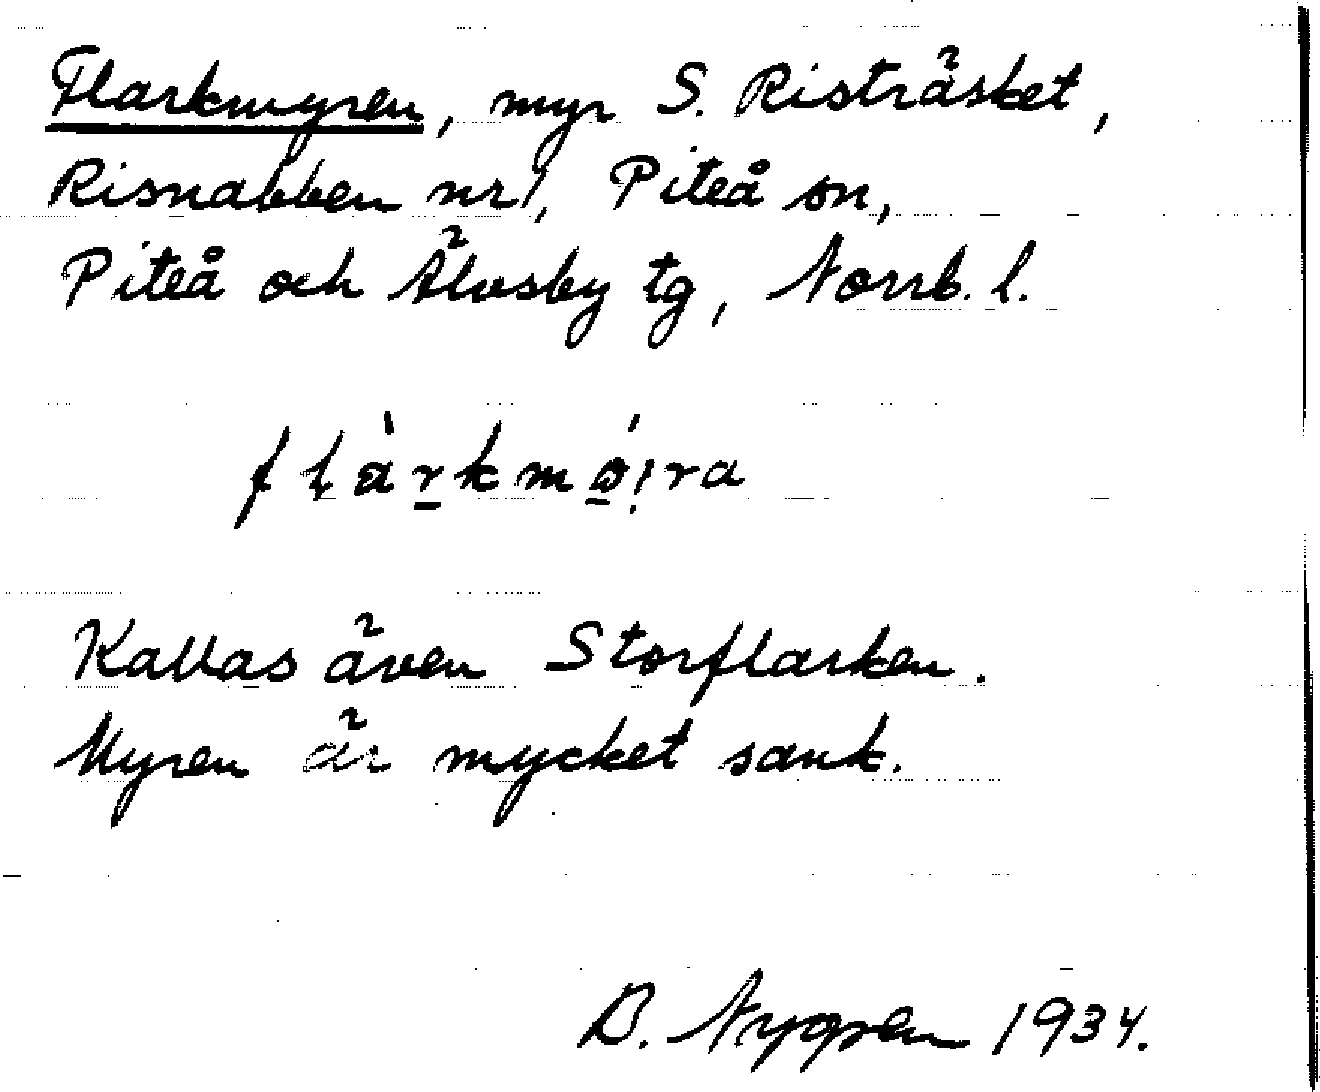 Flarkmyren, myr S. Risträsket,
Risnabben nr 1, Piteå sn,
Piteå och Älvsby tg, Norrb. l.
flàrkmǿ̱ịra
Kallas även Storflarken.
Myren är mycket sank.
B. Nygren 1934.